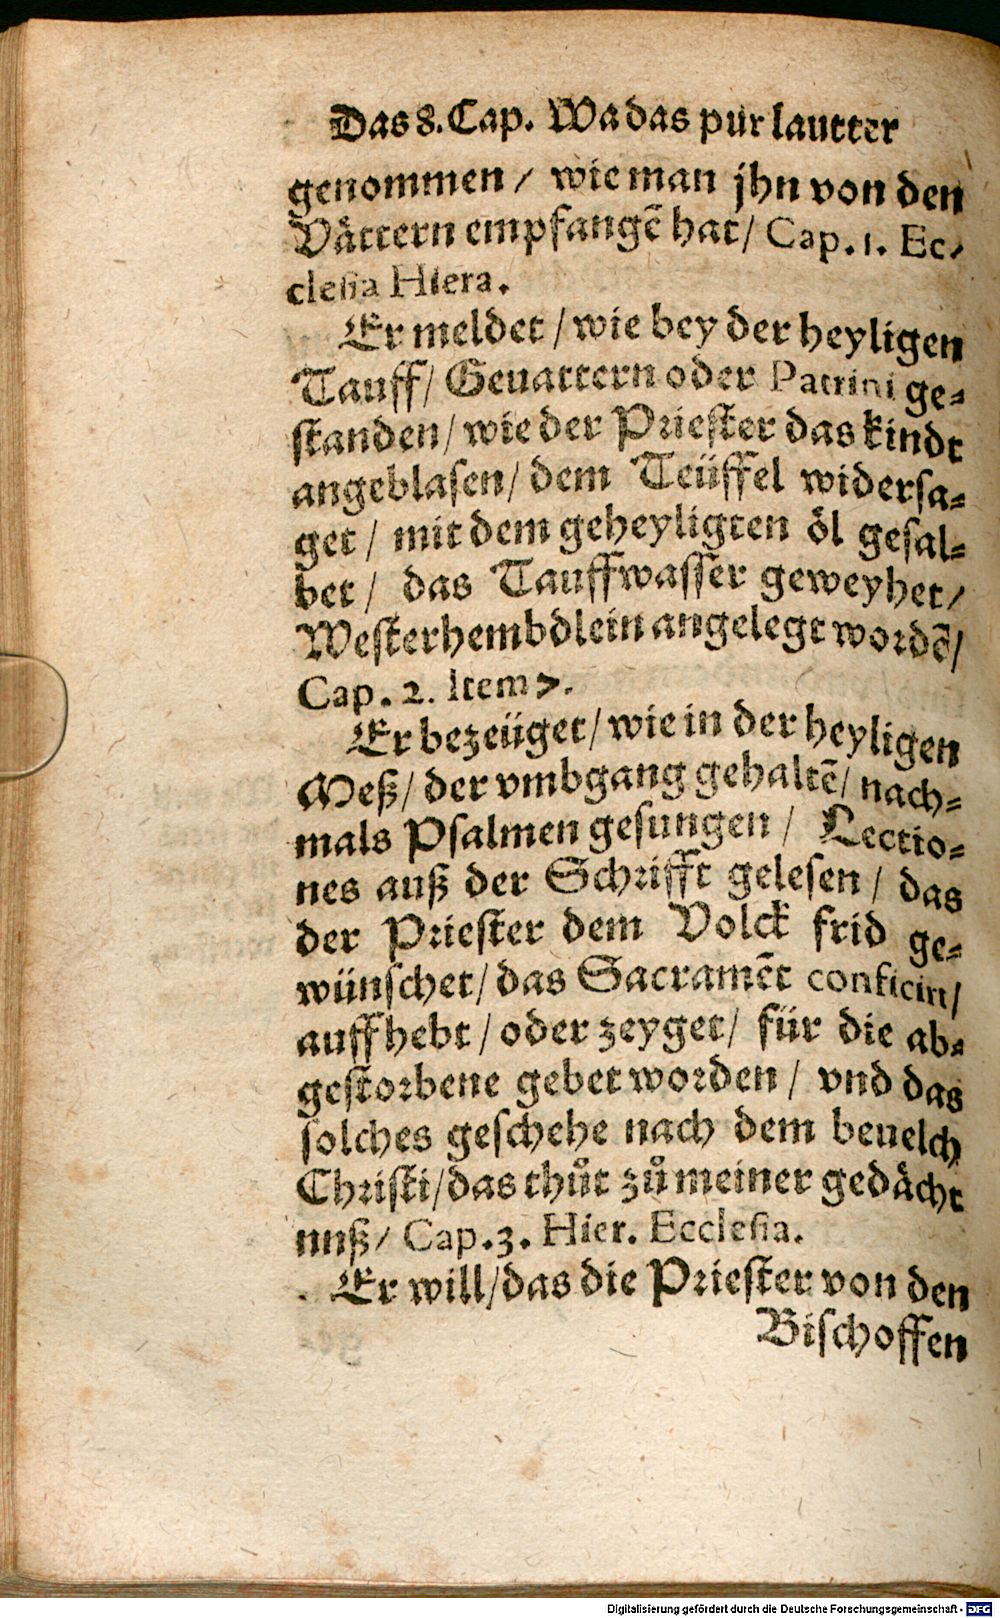 Das 8. Cap. Wa das pur lautter
genommen / wie man jhn von den
Vättern empfangē hat / Cap. 1. Ec-
clesia Hiera.
Er meldet / wie bey der heyligen
Tauff / Geuattern oder Patrini ge-
standen / wie der Priester das kindt
angeblasen / dem Teüffel widersa-
get / mit dem geheyligten öl gesal-
bet / das Tauffwasser geweyhet /
Westerhembdlein angelegt wordē /
Cap. 2. Item 7.
Er bezeüget / wie in der heyligen
Meß / der vmbgang gehaltē / nach-
mals Psalmen gesungen / Lectio-
nes auß der Schrifft gelesen / das
der Priester dem Volck frid ge-
wünschet / das Sacramēt conficirt /
auffhebt / oder zeyget / für die ab-
gestorbene gebet worden / vnd das
solches geschehe nach dem beuelch
Christi / das thůt zů meiner gedächt
nuß / Cap. 3. Hier. Ecclesia.
Er will / das die Priester von den
Bischoffen
Digitalisierung gefördert durch die Deutsche Forschungsgemeinschaft - DFG